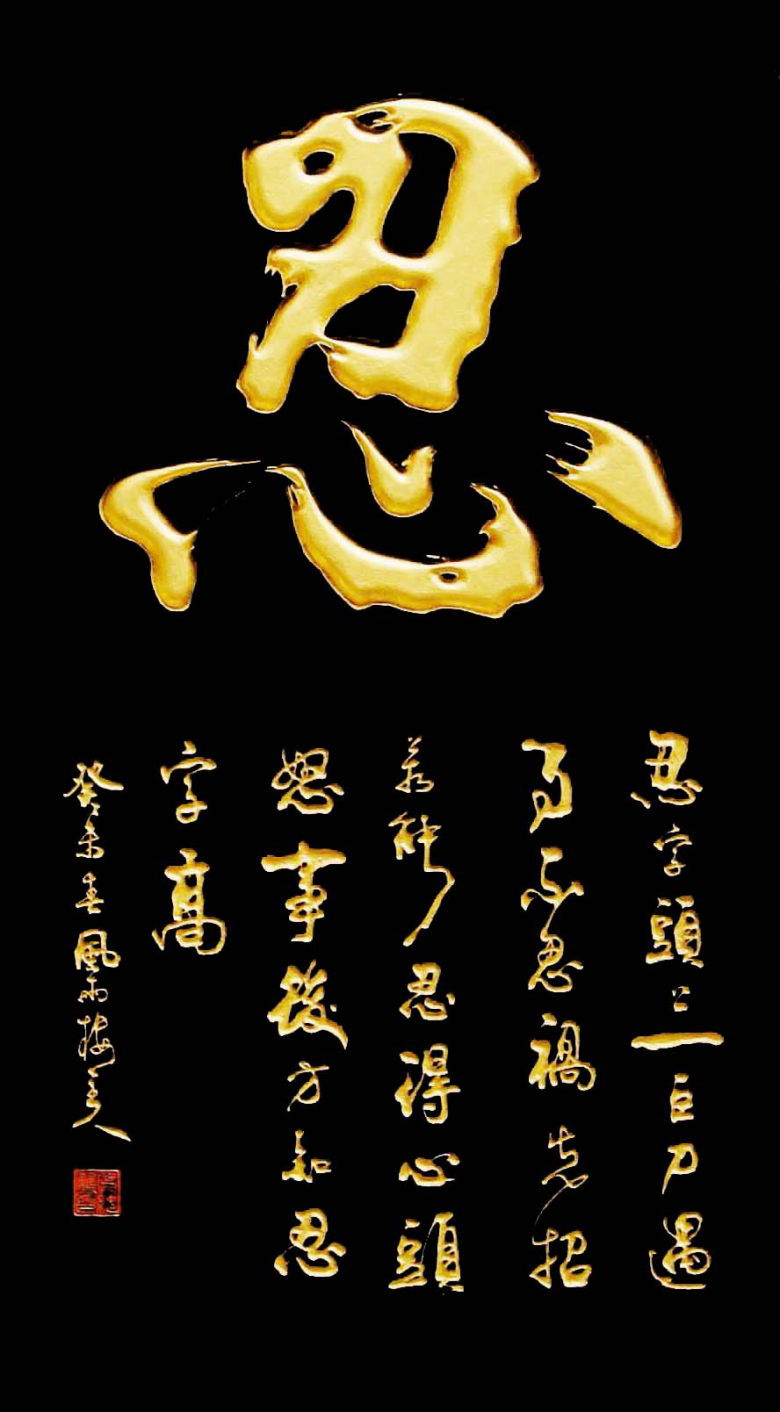 忍
忍字頭上一巨刀遇
事不忍禍先招
若能忍得心頭
怒事後方知忍
字高
癸未春風雨樓主人